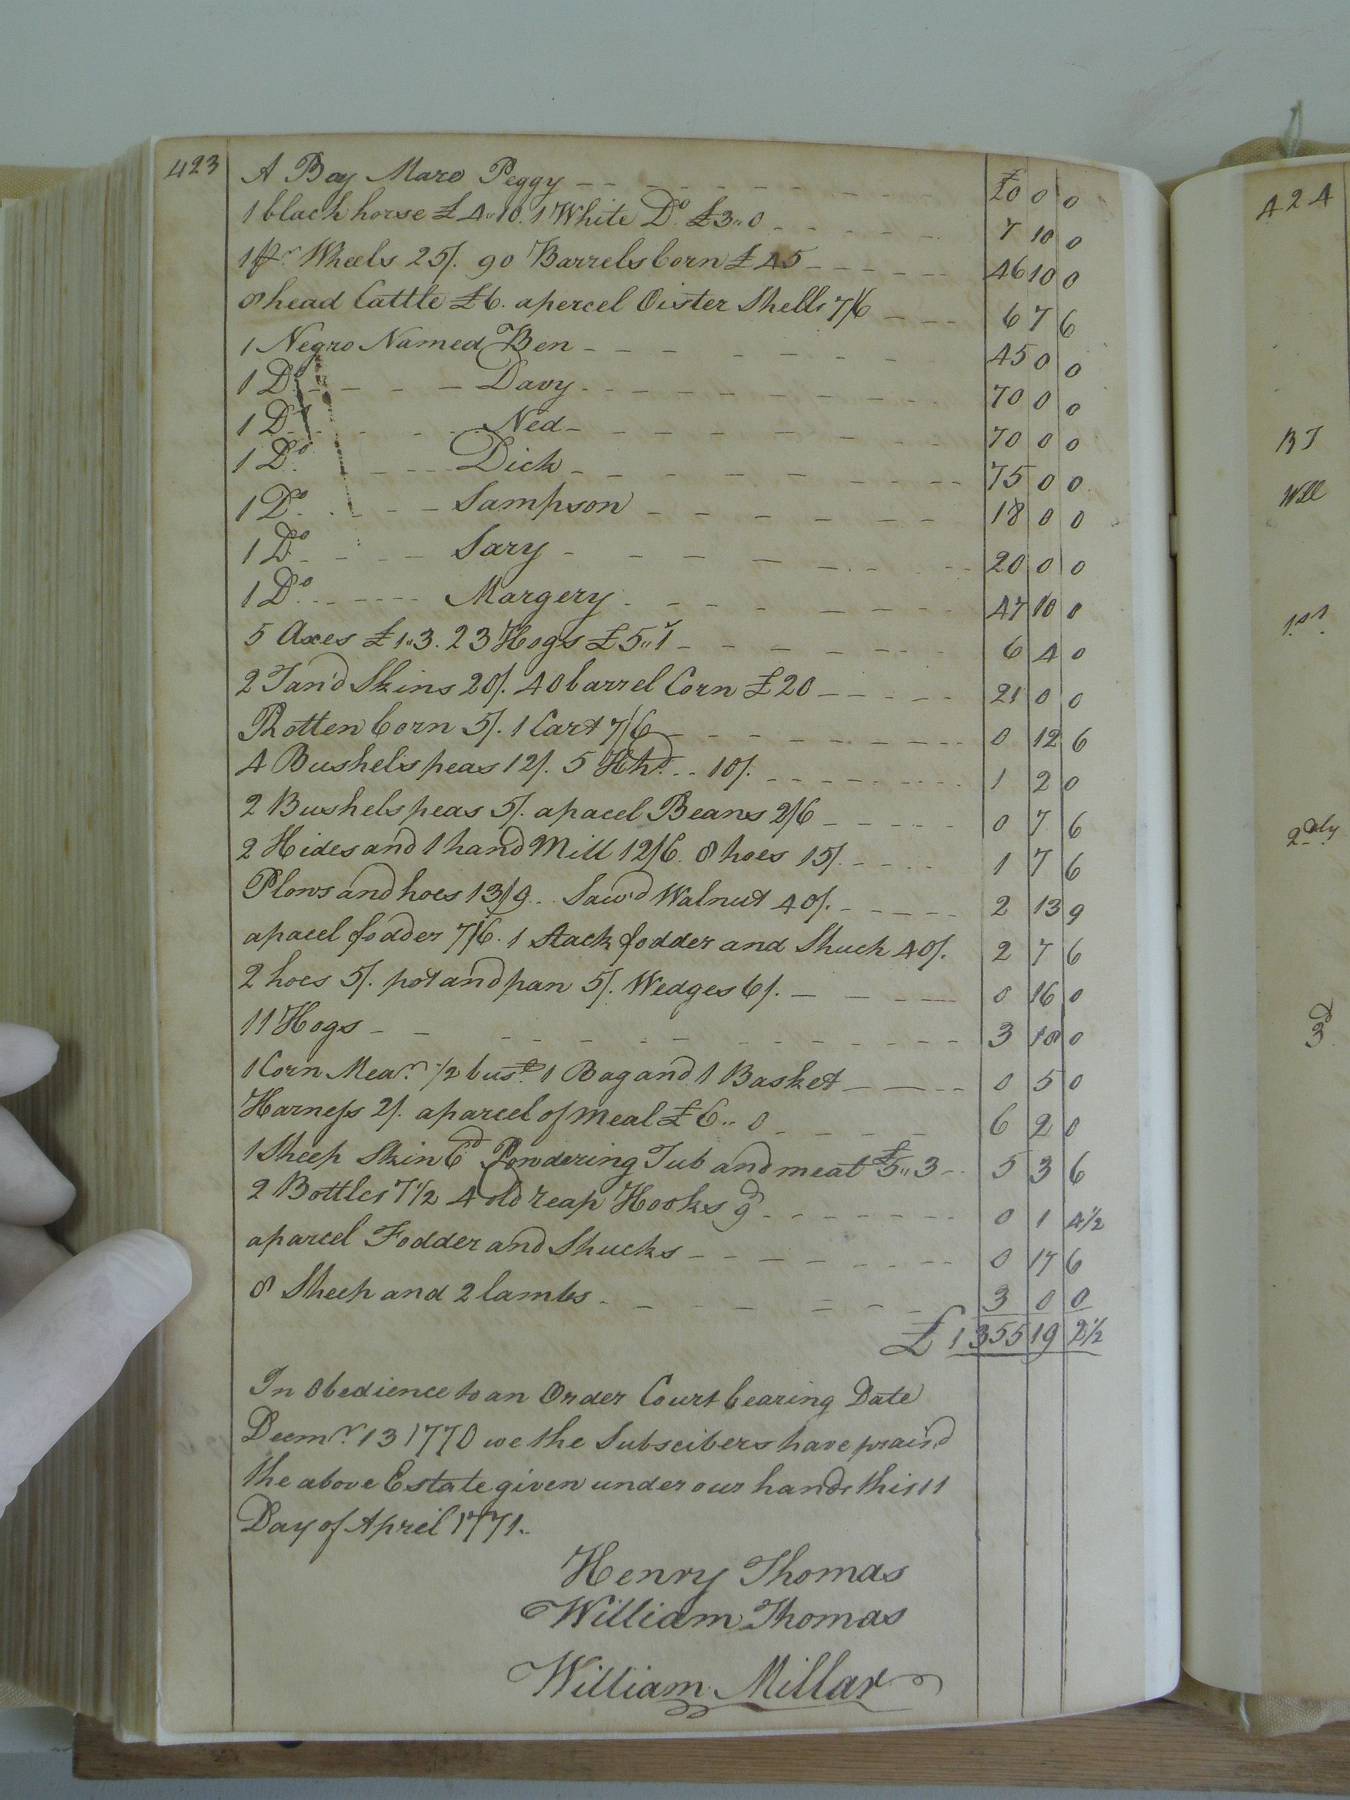 423
A Bay Mare Peggy £20 0 0
1 black horse £4,,10. 1 White Do £3,,0 7 10 0
1 pr Wheels 25/. 90 Barrels Corn £45 46 10 0
8 head Cattle £6. a percel Oister Shells 7/6 6 7 6
1 Negro Named Ben 45 0 0
1 Do Davy 70 0 0
1 Do Ned 70 0 0
1 Do Dick 75 0 0
1 Do Sampson 18 0 0
1 Do Sary 20 0 0
1 Do Margery 47 10 0
5 Axes £1,,3. 23 Hogs £5,,1 6 4 0
2 Tan'd Skins 20/. 40 barrel Corn £20 21 0 0
Rotten Corn 5/. 1 Cart 7/6 0 12 6
4 Bushels peas 12/. 5 Hhd 10/. 1 2 0
2 Bushels peas 5/. a pacel Beans 2/6 0 7 6
2 Hides and 1 hand Mill 12/6. 8 hoes 15/. 1 7 6
Plows and hoes 13/9. Saw'd Walnut 40/. 2 13 9
a pacel fodder 7/6. 1 Stack fodder and Shuck 40/. 2 7 6
2 hoes 5/. pot and pan 5/. Wedges 6/. 0 16 0
11 Hogs 3 18 0
1 Corn Mear 1/2 bush 1 Bag and 1 Basket 0 5 0
Harness 2/. a parcel of meal £6,,0 6 2 0
1 Sheep Skin 6d Powdering Tub and meat £5,,3 5 3 6
2 Bottles 7 1/2 4 old reap Hooks 9d 0 1 4 1/2
a parcel Fodder and Shucks 0 17 6
8 Sheep and 2 lambs 3 0 0
£1355 19 2 1/2
In Obedience to an Order Court bearing Date
Decmr. 13 1770 we the Subscibers have prais'd
the above Estate given under our hands this 11
Day of April 1771.
Henry Thomas
William Thomas
William Millar
424
Will
1st
2dly
3d